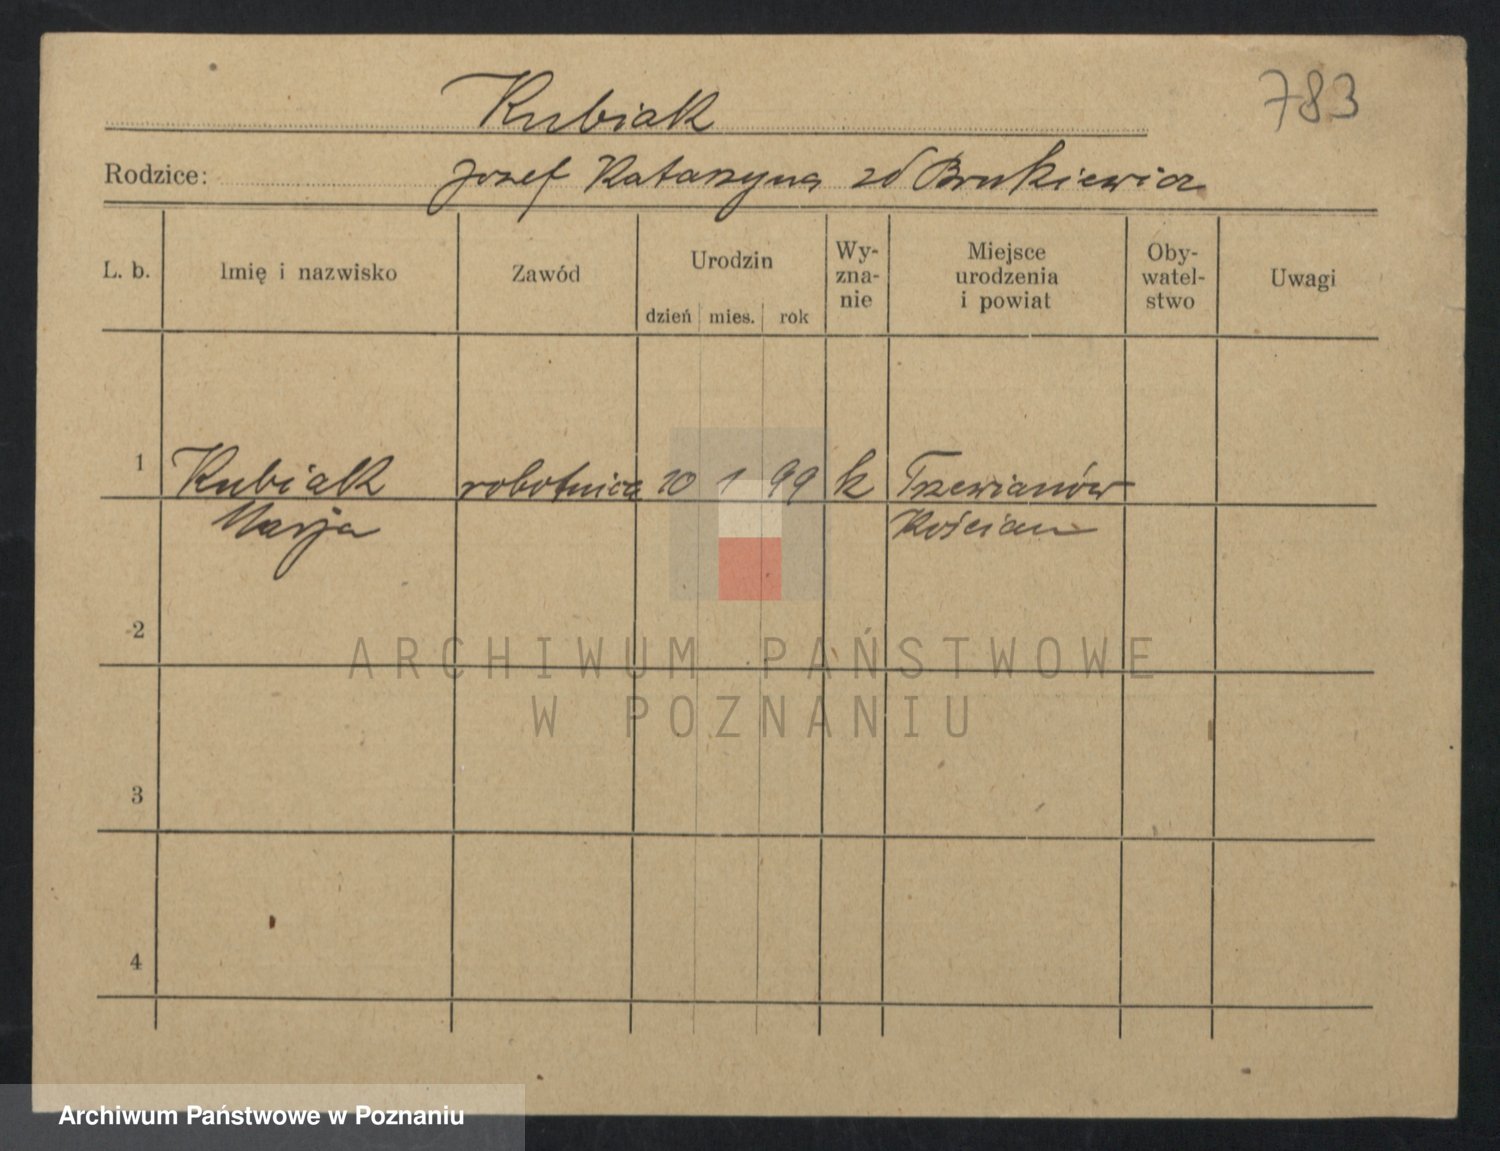 Kubiak
783
Rodzice: Josef Katarzyna zd Brukiewicz
L. b. Imię i nazwisko Zawód Urodzin dzień mies. rok Wy-zna-nie Miejsce urodzenia i powiat Oby-watel-stwo Uwagi
1 Kubiak robotnica 10 1 99 k
Marja Kościan
2
ARCHIWUM PAŃSTWOWE
W POZNANIU
3
4
Archiwum Państwowe w Poznaniu